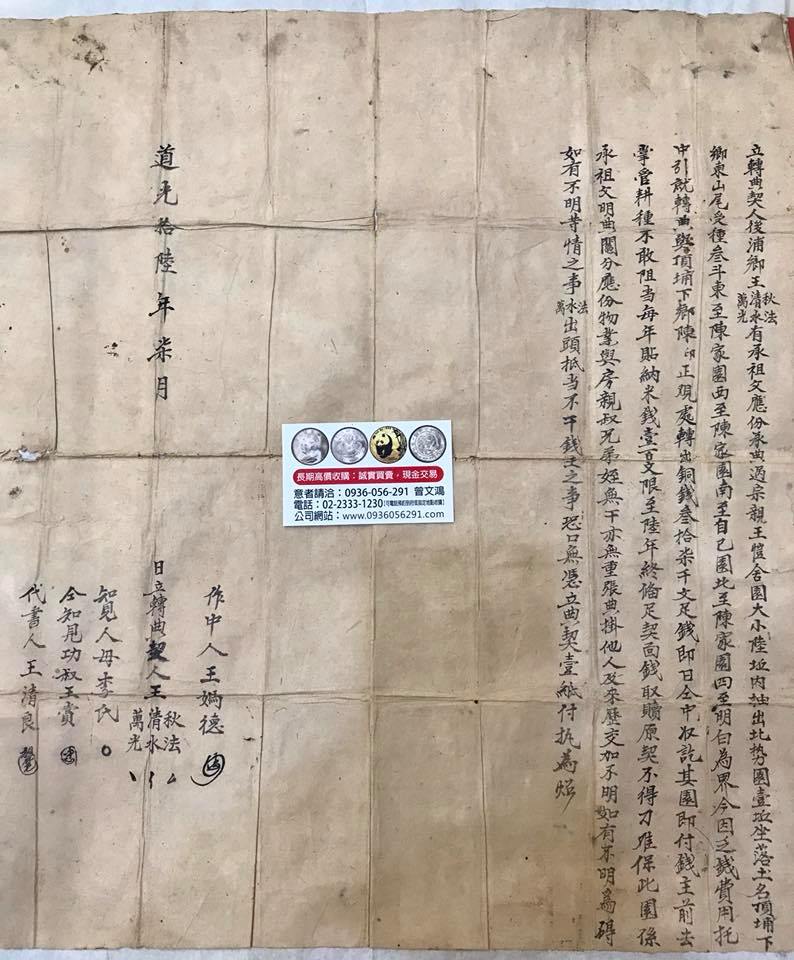 立轉典契人後浦鄉王秋法清水萬光有承祖父應份承典過宗親王愷舍園大小陸坵內抽出北势園壹坵坐落土名頂埔下
鄉東山尾受種叁斗東至陳家園西至陳家園南至自己園北至陳家園四至明白為界今因乏錢費用托
中引就轉典與頂埔下鄉陳 正观處轉出銅錢叁拾柒千文足錢即日仝中收訖其園即付錢主前去
掌管耕種不敢阻当每年貼納米錢壹百文限至陸年終俻足契面錢取贖原契不得刁难保此園係
承祖父明典鬮分應份物業與房親叔兄弟姪無干亦無重張典掛他人及來歷交加不明如有不明為碍
如有不明等情之事法水萬出頭抵当不干錢主之事恐口無憑立典契壹紙付执為炤
道光拾陸年柒月
作中人王媽德
日立轉典契人王秋法清水萬光
知見人母李氏
仝知見功叔王賞
代書人王清良
長期高價收購:誠實買賣,現金交易
意者請洽:0936-056-291 曾文鴻
電話:02-2333-1230(可電話預約到府或指定地點收購)
公司網站:www.0936056291.com